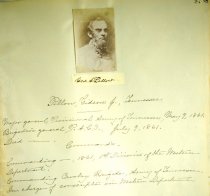 Gid. J. Pillow
Pillow, Gideon J., Tennessee.
Major general Provisional Army of Tennessee May 9, 1861.
Brigadier general, P.A.C.S. July 9, 1861.
Died
Commands.
Commanding — , 1861, Division of the Western
Department.
Commanding Cavalry Brigade, Army of Tennessee.
In charge of conscription in Western Department